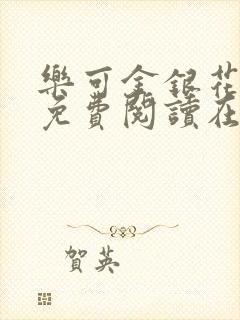 樂可金銀花
免費閱讀在
賀英